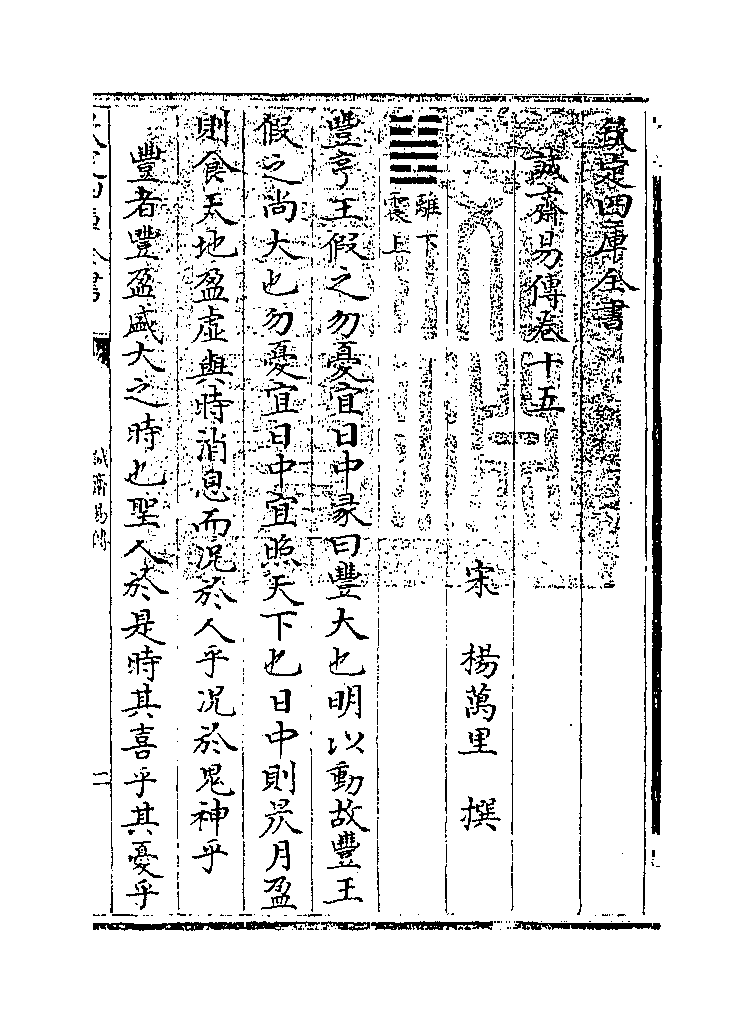 欽定四庫全書
誠齋易傳卷十五
宋 楊萬里 撰
離下
震上
豐亨王假之勿憂宜日中彖曰豐大也明以動故豐王
假之尚大也勿憂宜日中宜照天下也日中則昃月盈
則食天地盈虛與時消息而況於人乎況於鬼神乎
豐者豐盈盛大之時也聖人於是時其喜乎其憂乎
誠齋易傳